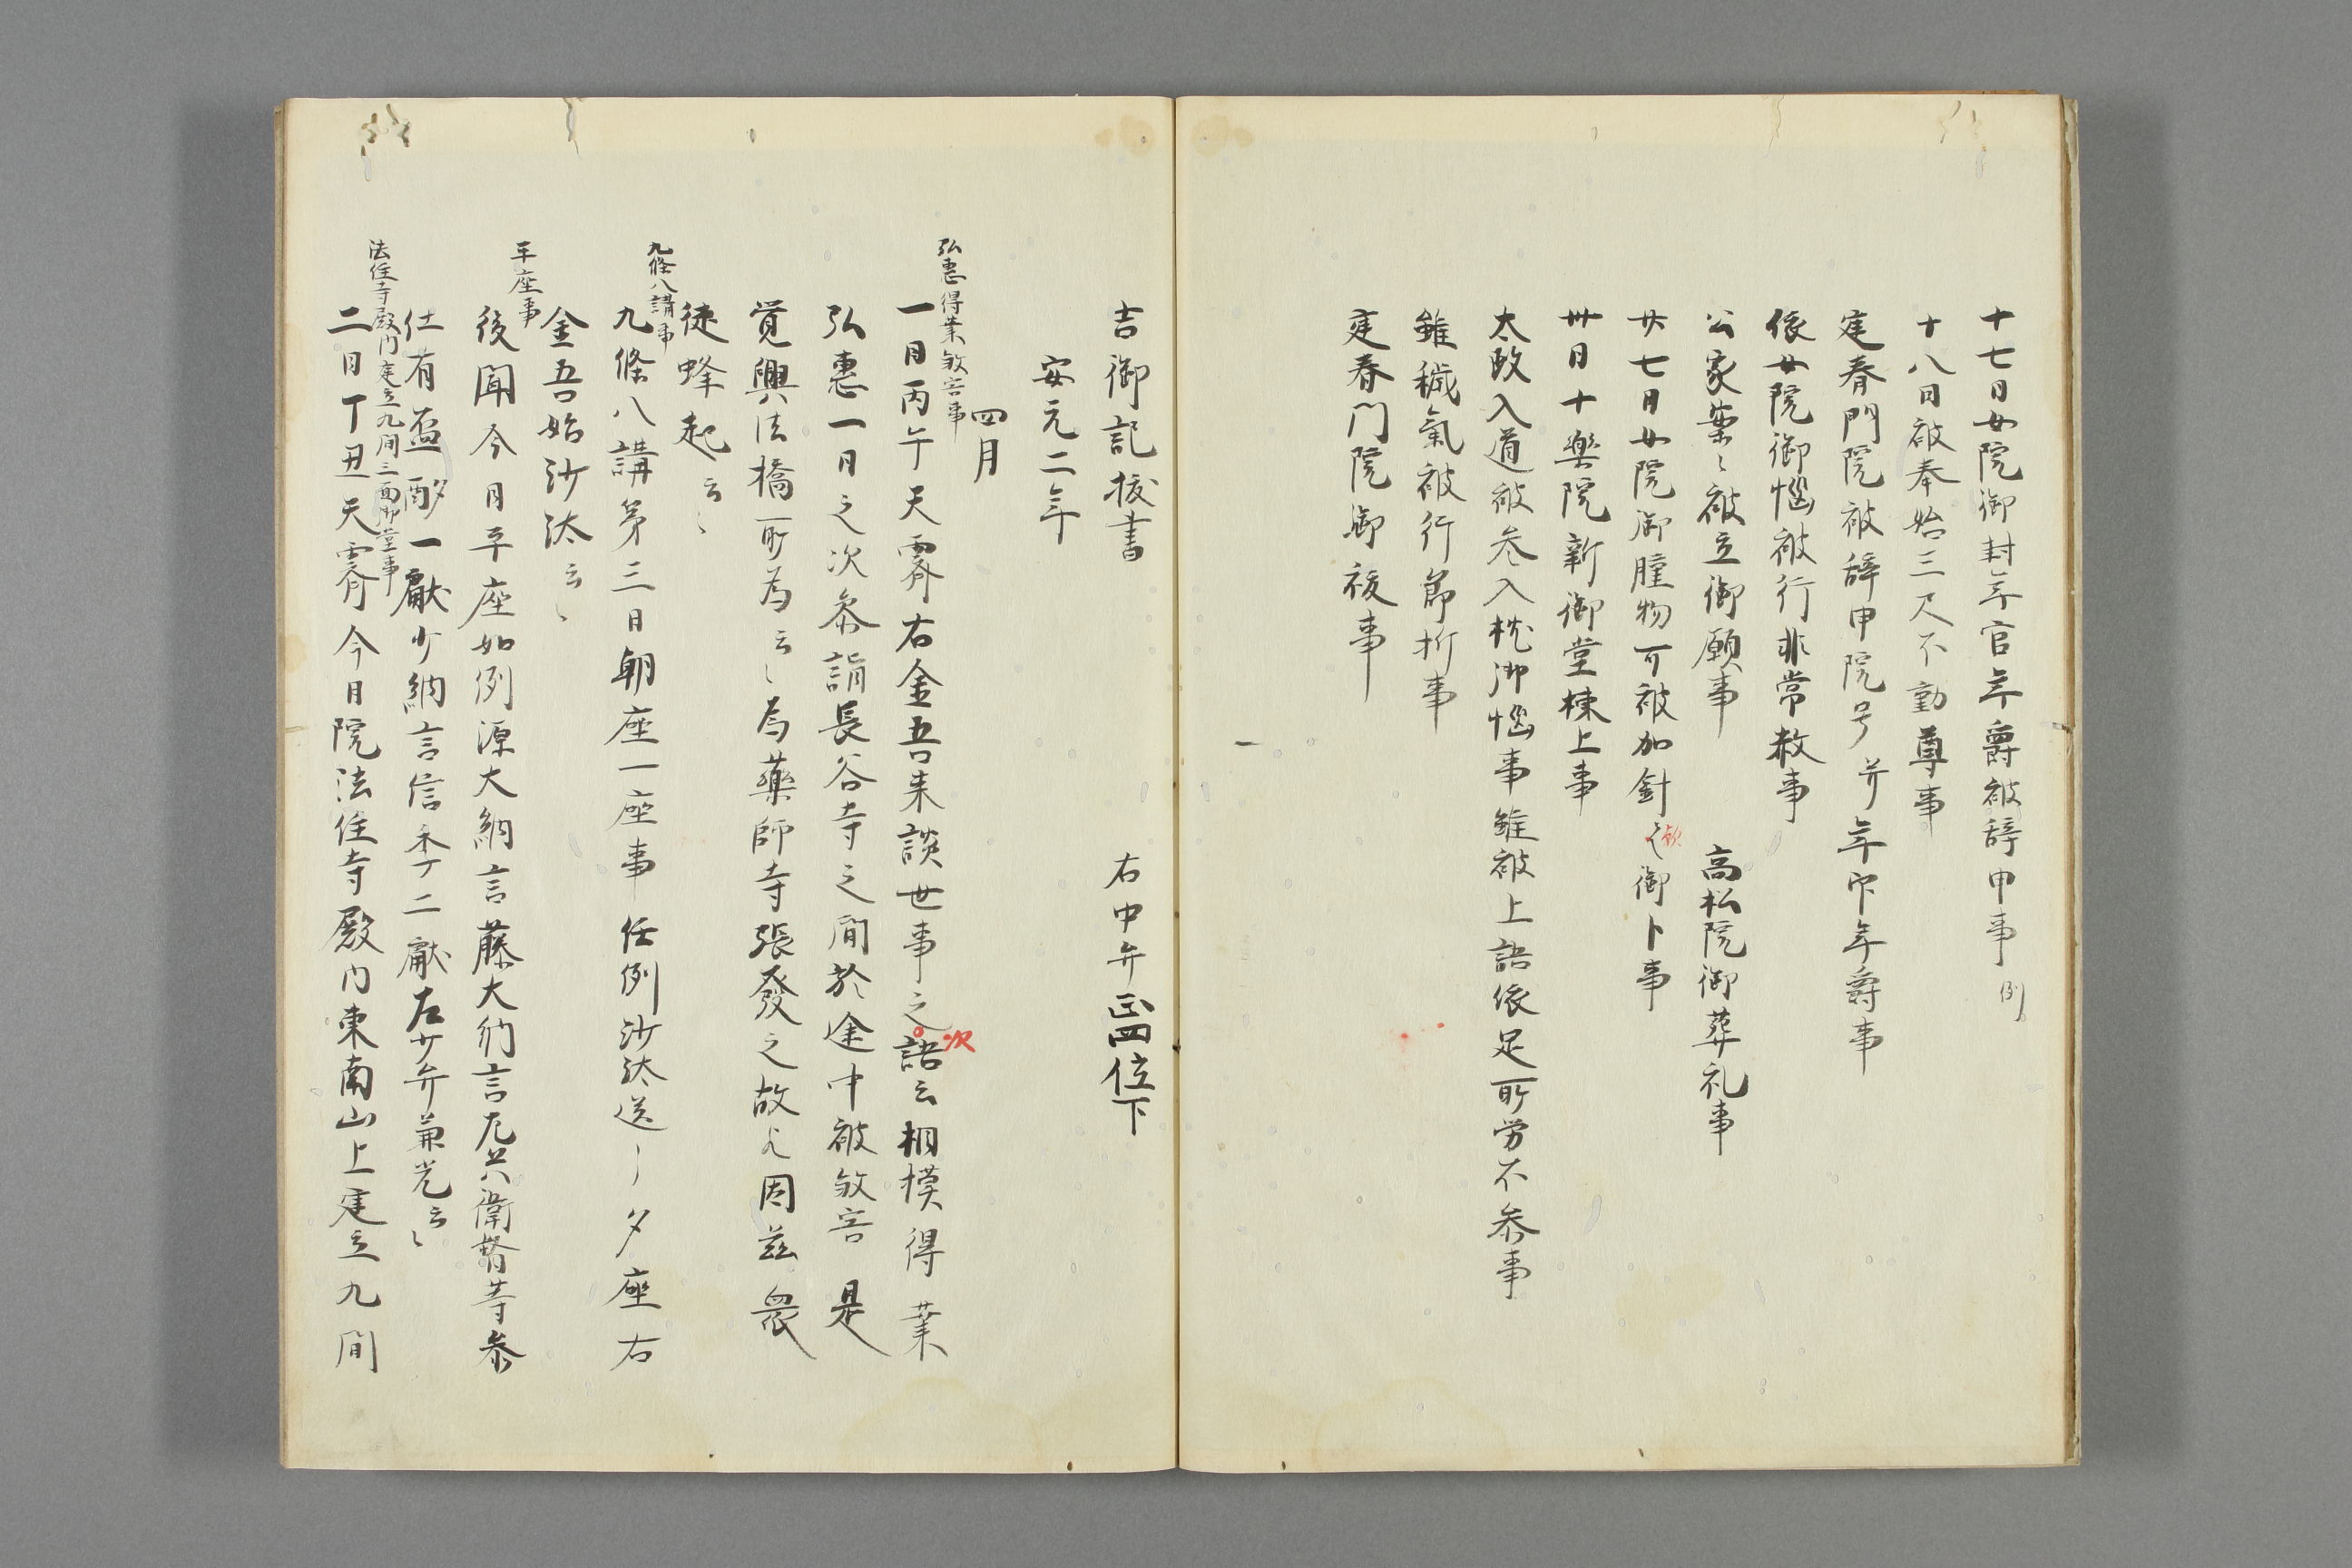 十七日女院御封年官年爵被辞申事 例
十八日被奉始三尺不動尊事
建春門院被辞申院号并年官年爵事
依女院御悩被行非常赦事
公家葉〻被立御願事 高松院御葬礼事
廿七日女院御腫物可被加針之御卜事
歟
卅日十楽院新御堂棟上事
太政入道被参入枕御悩事雖被上語依足所労不参事
雖穢氣被行節折事
建春門院御祓事
吉御記抜書 右中弁正四位下
安元二年
四月
弘恵得業殺害事
一日丙午天霽右金吾来談世事之語云相模得業
次
弘惠一日之次參詣長谷寺之間於途中被殺害是
覚興法橋所為云〻為藥師寺張發之故也因茲衆
徒蜂起云〻
九條八講事
九條八講第三日朝座一座事任例沙汰送了夕座右
金吾始沙汰云〻
平座事
後聞今日平座如例源大納言藤大納言左兵衛督等参
仕有盃酌一獻少納言信季二獻左少弁兼光云〻
法住寺殿内建立九間三面御堂事
二日丁丑天霽今日院法住寺殿内東南山上建立九間